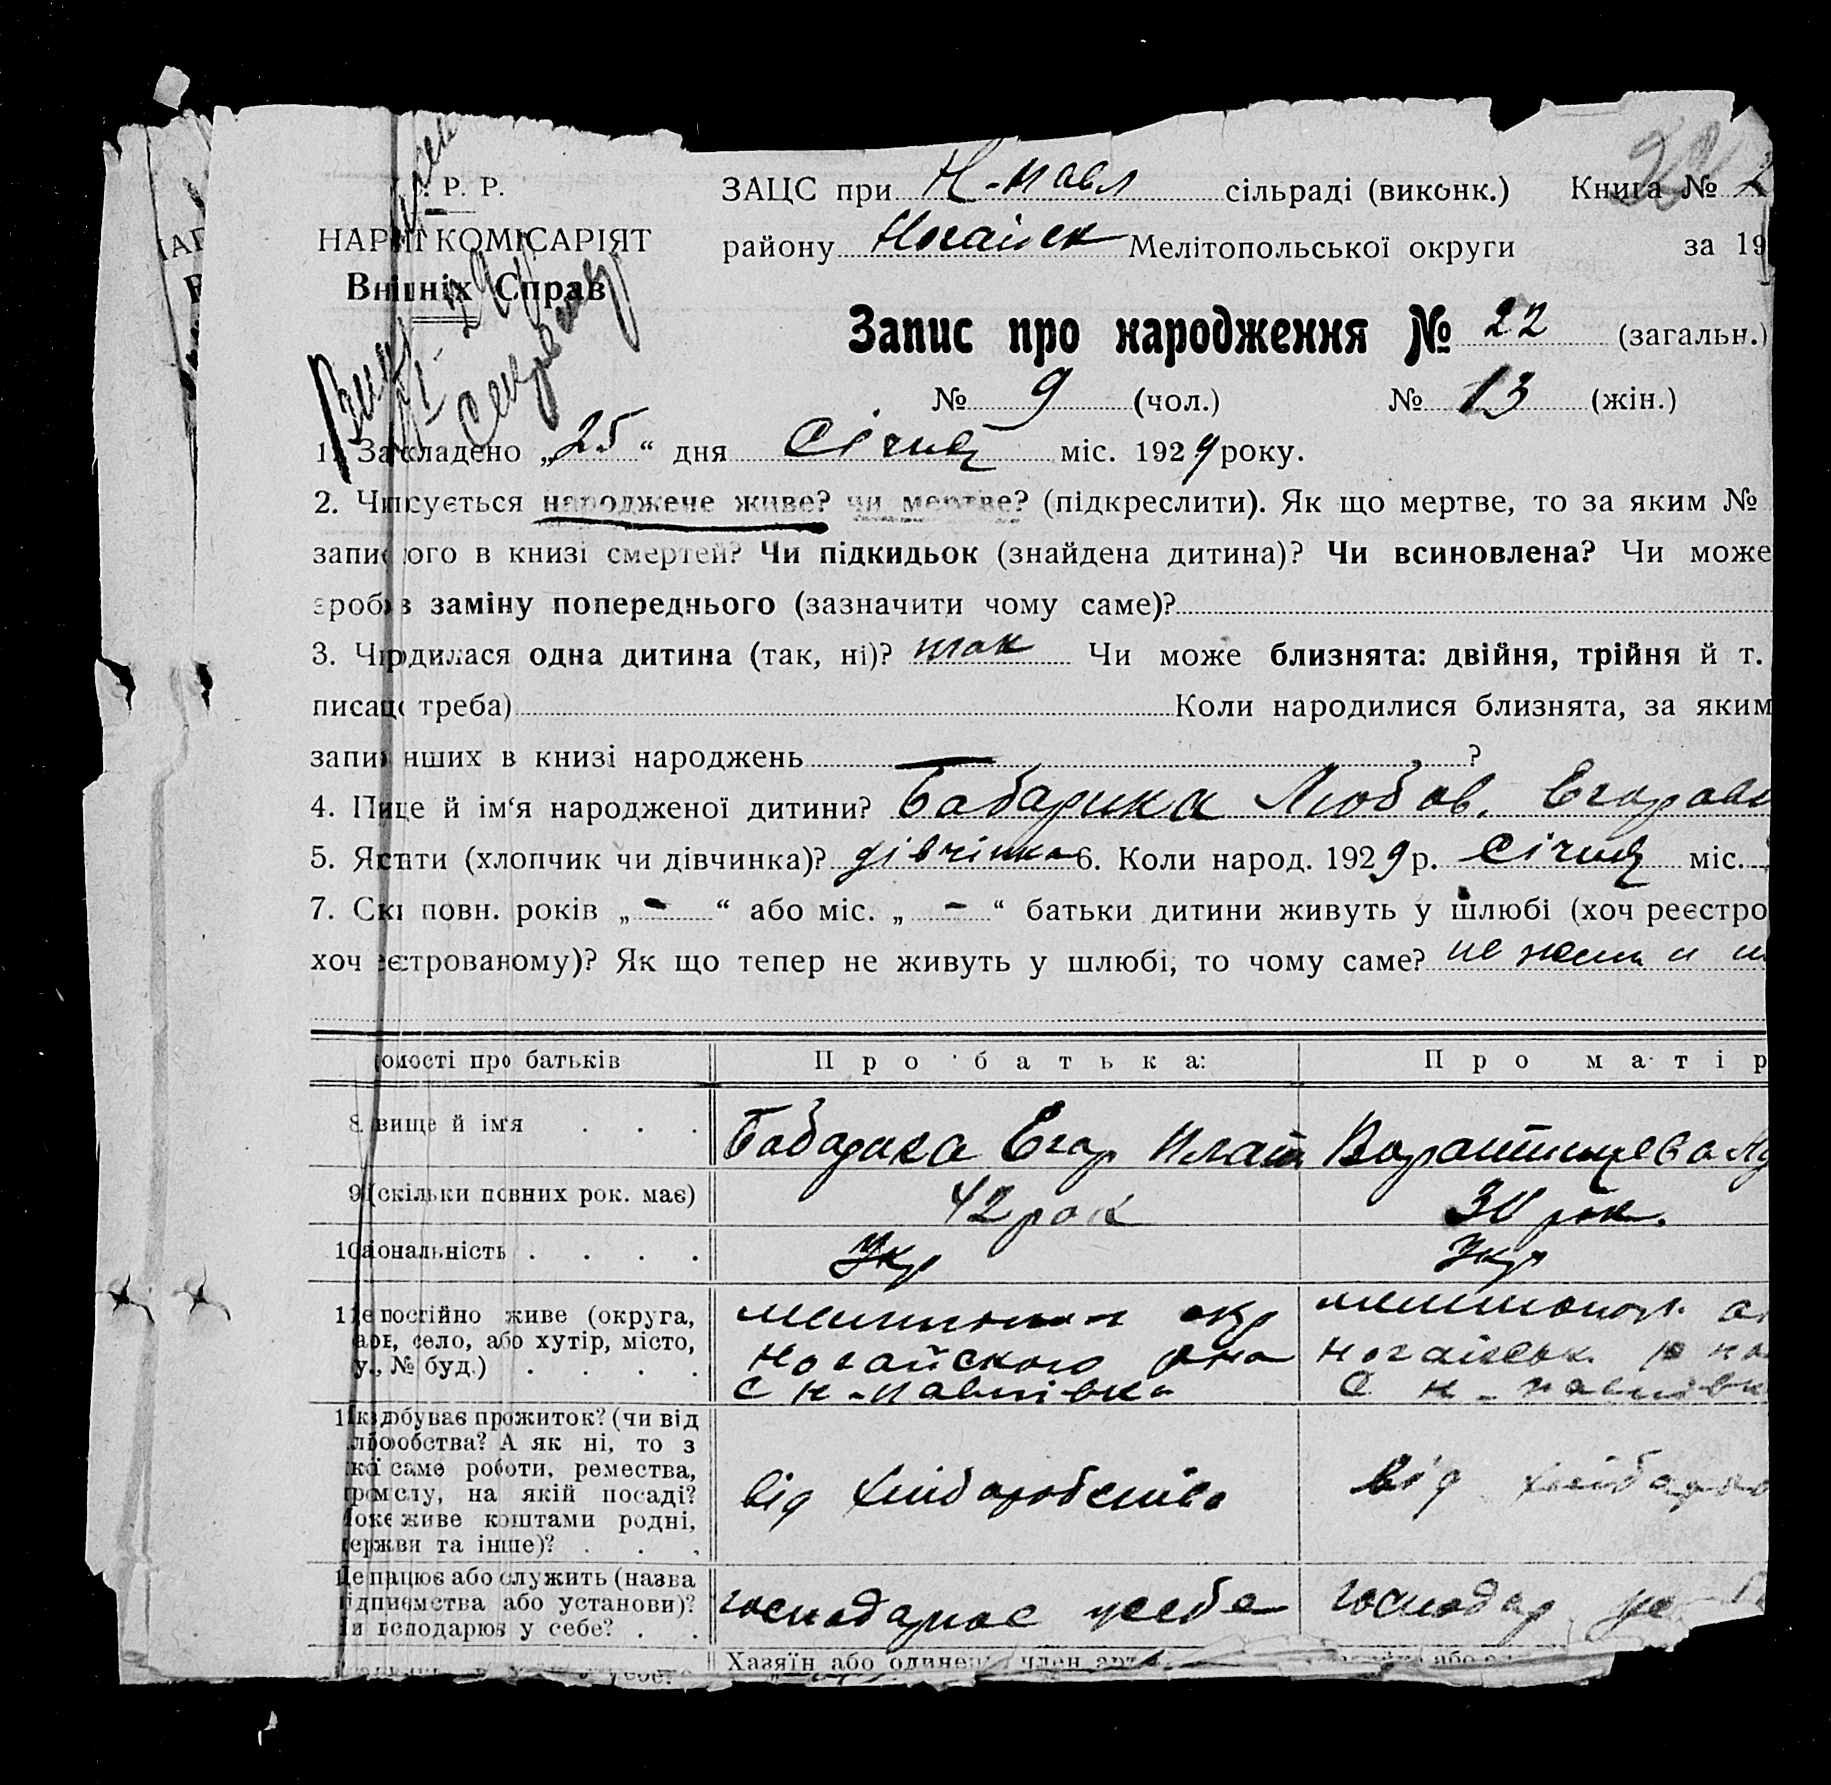 Р. Р.
НАР КОМІСАРІЯТ
Внішніх Справ
ЗАЦС при Н-павл сільраді (виконк.) Книга №
району Ногайск Мелітопольської округи за 19
Запис про народження № 22 (загальн.)
№ 9 (чол.) № 13 (жін.)
1. Закладено „25“ дня Січня міс. 1929 року.
2. Чи сується народжене живе? чи мертве? (підкреслити). Як що мертве, то за яким №
запи ого в книзі смертей? Чи підкидьок (знайдена дитина)? Чи всиновлена? Чи може
зроб в заміну попереднього (зазначити чому саме)?
3. Ч родилася одна дитина (так, ні)? так Чи може близнята: двійня, трійня й т.
писа треба) Коли народилися близнята, за яким
запи нших в книзі народжень — ?
4. П ще й ім‘я народженої дитини? Бабарика Любов. Егоров
5. Я стати (хлопчик чи дівчинка)? дівчінка 6. Коли народ. 1929 р. Січня міс.
7. Ск повн. років „ - “ або міс. „ - “ батьки дитини живуть у шлюбі (хоч реєстро
хоч еєстрованому)? Як що тепер не живуть у шлюбі, то чому саме? не
омості про батьків Про батька: Про матір
8. вище й ім'я Бабарика Егор Плат
9. (скільки повних рок. має) 42 рок 30 рок.
10. ціональність Укр Укр
11. е постійно живе (округа,
село, або хутір, місто,
у., № буд.)
Ногайского р на
С Н-павлівка
С Н-павлівк
здобуває прожиток? (чи від
обства? А як ні, то з
саме роботи, ремества,
ромслу, на якій посаді?
оже живе коштами родні,
ержви та інше)?
від хлібаробства
від хлібаро
Де працює або служить (назва
ідприємства або установи)?
и господарює у себе?
господарює усебе
господар уе
Хазяїн або одинец член арт